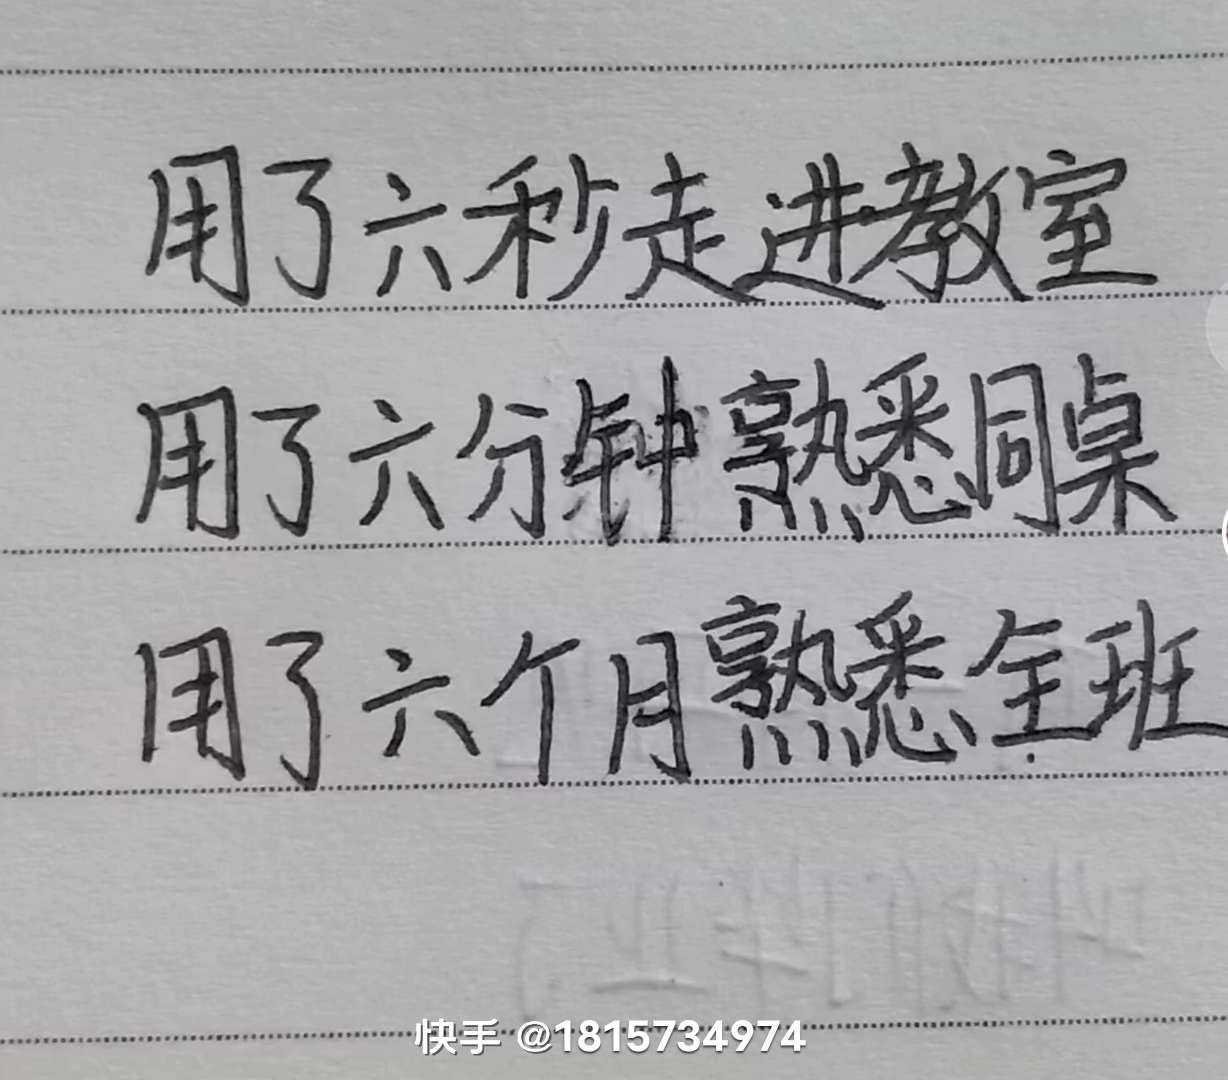 用了六秒走进教室
用了六分钟熟悉同桌
用了六个月熟悉全班
快手 @1815734974